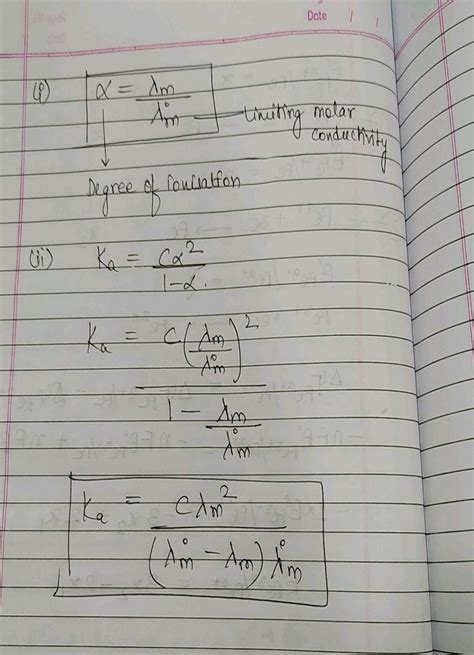 Date
(i) α = λm / λ°m
Limiting molar
conductivity
Degree of ionisation
(ii) Ka = Cα² / 1-α.
Ka = C(λm / λ°m)² / 1 - λm / λ°m
Ka = Cλm² / (λ°m - λm) λ°m